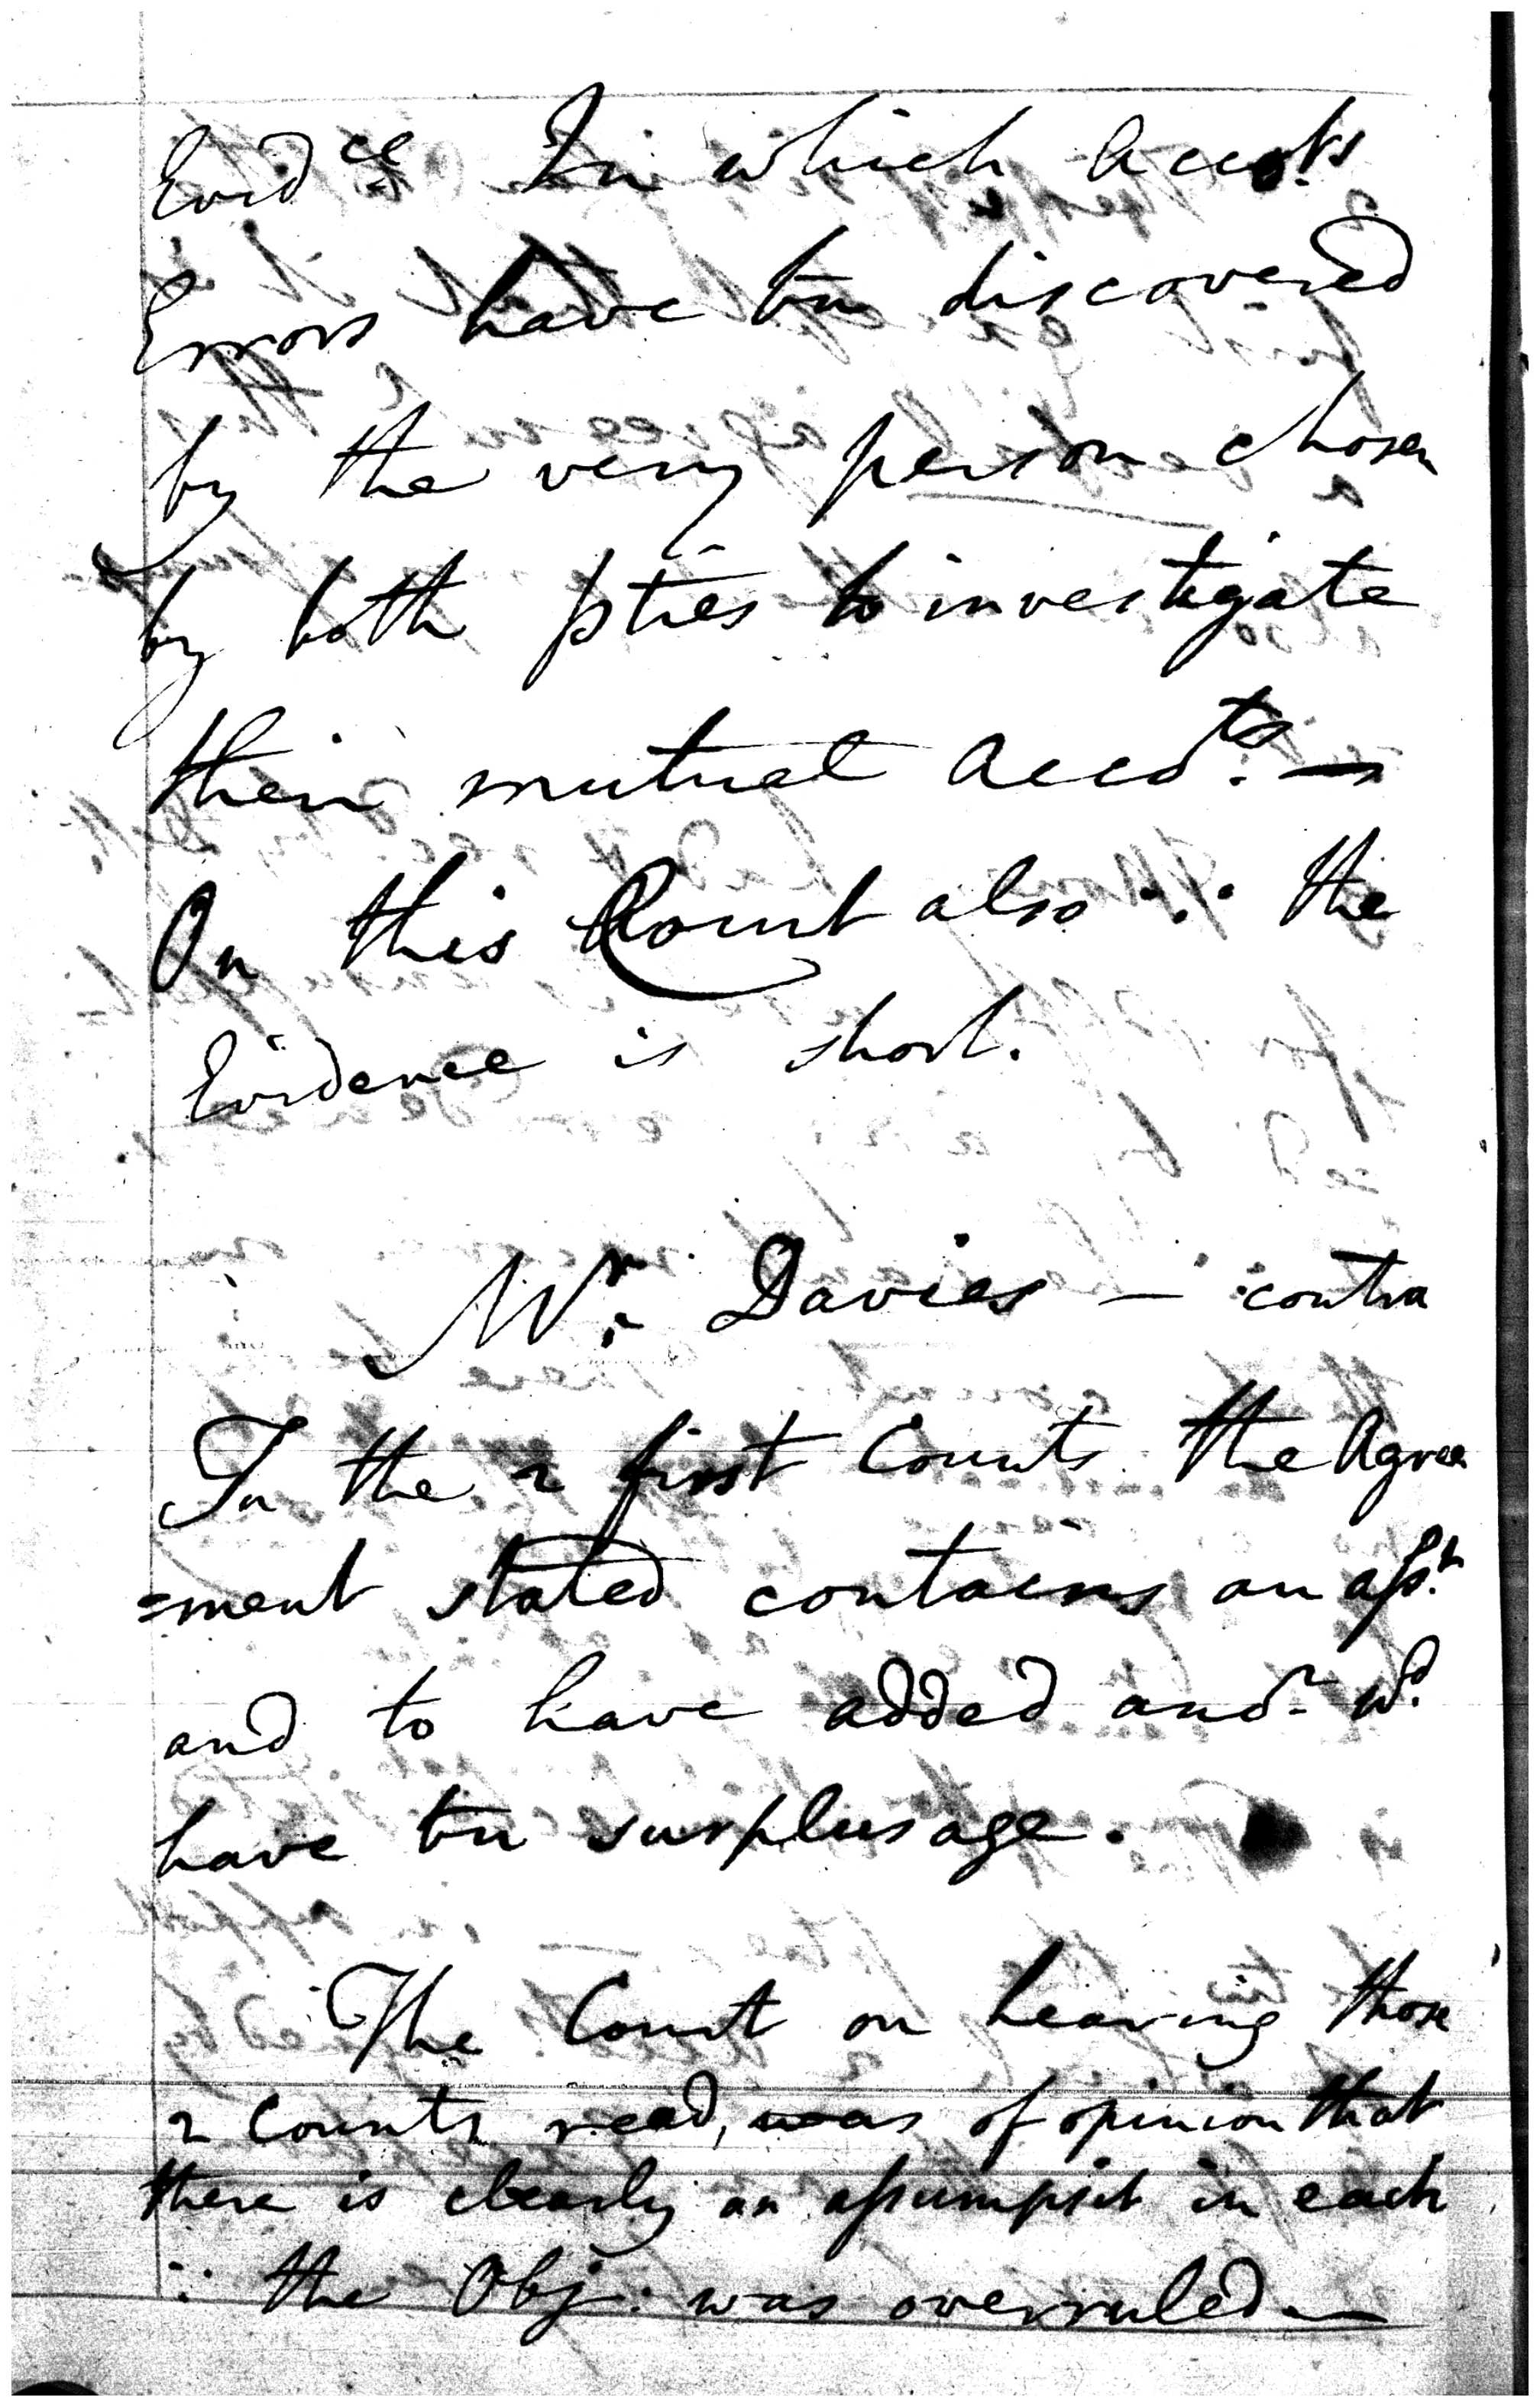 Evid^ce In which Accots
Errors have bn discovered
by the very person chosen
by both pties to investigate
their mutual Acco^ts. —
On this Count also ∴ the
Evidence is short.
M^r. Davies — contra
In the 2 first Counts the Agree
=ment stated contains an ass^t.
and to have added ano^r w^d.
have bn surplusage.
The Court on hearing those
2 Counts read, was of opinion that
there is clearly an assumpsit in each
∴ the Obj: was overruled —